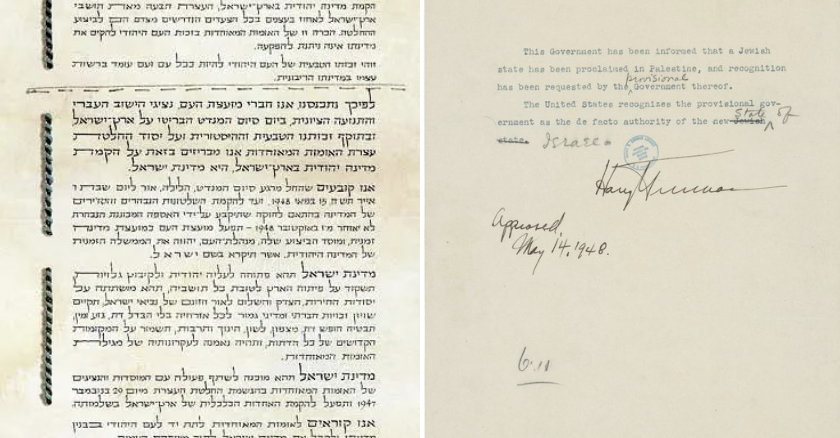 הקמת מדינה יהודית בארץ־ישראל, העצרת תבעה מאת תושבי
ארץ־ישראל לאחוז בעצמם בכל הצעדים הנדרשים מצדם הם לביצוע
ההחלטה. הכרה זו של האומות המאוחדות בזכות העם היהודי להקים את
מדינתו אינה ניתנת להפקעה.
זוהי זכותו הטבעית של העם היהודי להיות ככל עם ועם עומד ברשות
עצמו במדינתו הריבונית.
לפיכך נתכנסנו, אנו חברי מועצת העם, נציגי הישוב העברי
והתנועה הציונית, ביום סיום המנדט הבריטי על ארץ־ישראל
ובתוקף זכותנו הטבעית וההיסטורית ועל יסוד החלטת
עצרת האומות המאוחדות אנו מכריזים בזאת על הקמת
מדינה יהודית בארץ־ישראל, היא מדינת ישראל.
אנו קובעים שהחל מרגע סיום המנדט, הלילה, אור ליום שבת ו׳
אייר תש״ח, 15 במאי 1948, ועד להקמת השלטונות הנבחרים והסדירים
של המדינה בהתאם לחוקה שתיקבע על־ידי האספה המכוננת הנבחרת
לא יאוחר מ־1 באוקטובר 1948 – תפעל מועצת העם כמועצת מדינה
זמנית, ומוסד הביצוע שלה, מנהלת־העם, יהווה את הממשלה הזמנית
של המדינה היהודית, אשר תיקרא בשם ישראל.
מדינת ישראל תהא פתוחה לעליה יהודית ולקיבוץ גלויות
תשקוד על פיתוח הארץ לטובת כל תושביה, תהא מושתתה על
יסודות החירות, הצדק והשלום לאור חזונם של נביאי ישראל, תקיים
שויון זכויות חברתי ומדיני גמור לכל אזרחיה בלי הבדל דת, גזע ומין,
תבטיח חופש דת, מצפון, לשון, חינוך ותרבות, תשמור על המקומות
הקדושים של כל הדתות, ותהיה נאמנה לעקרונותיה של מגילת
האומות המאוחדות.
מדינת ישראל תהא מוכנה לשתף פעולה עם המוסדות והנציגים
של האומות המאוחדות בהגשמת החלטת העצרת מיום 29 בנובמבר
1947 ותפעל להקמת האחדות הכלכלית של ארץ־ישראל בשלמותה.
אנו קוראים לאומות המאוחדות לתת יד לעם היהודי בבנין
This Government has been informed that a Jewish
state has been proclaimed in Palestine, and recognition
has been requested by the provisional Government thereof.
The United States recognizes the provisional gov-
ernment as the de facto authority of the new Jewish State of
state. Israel.
Harry Truman
Approved,
May 14, 1948.
6.11